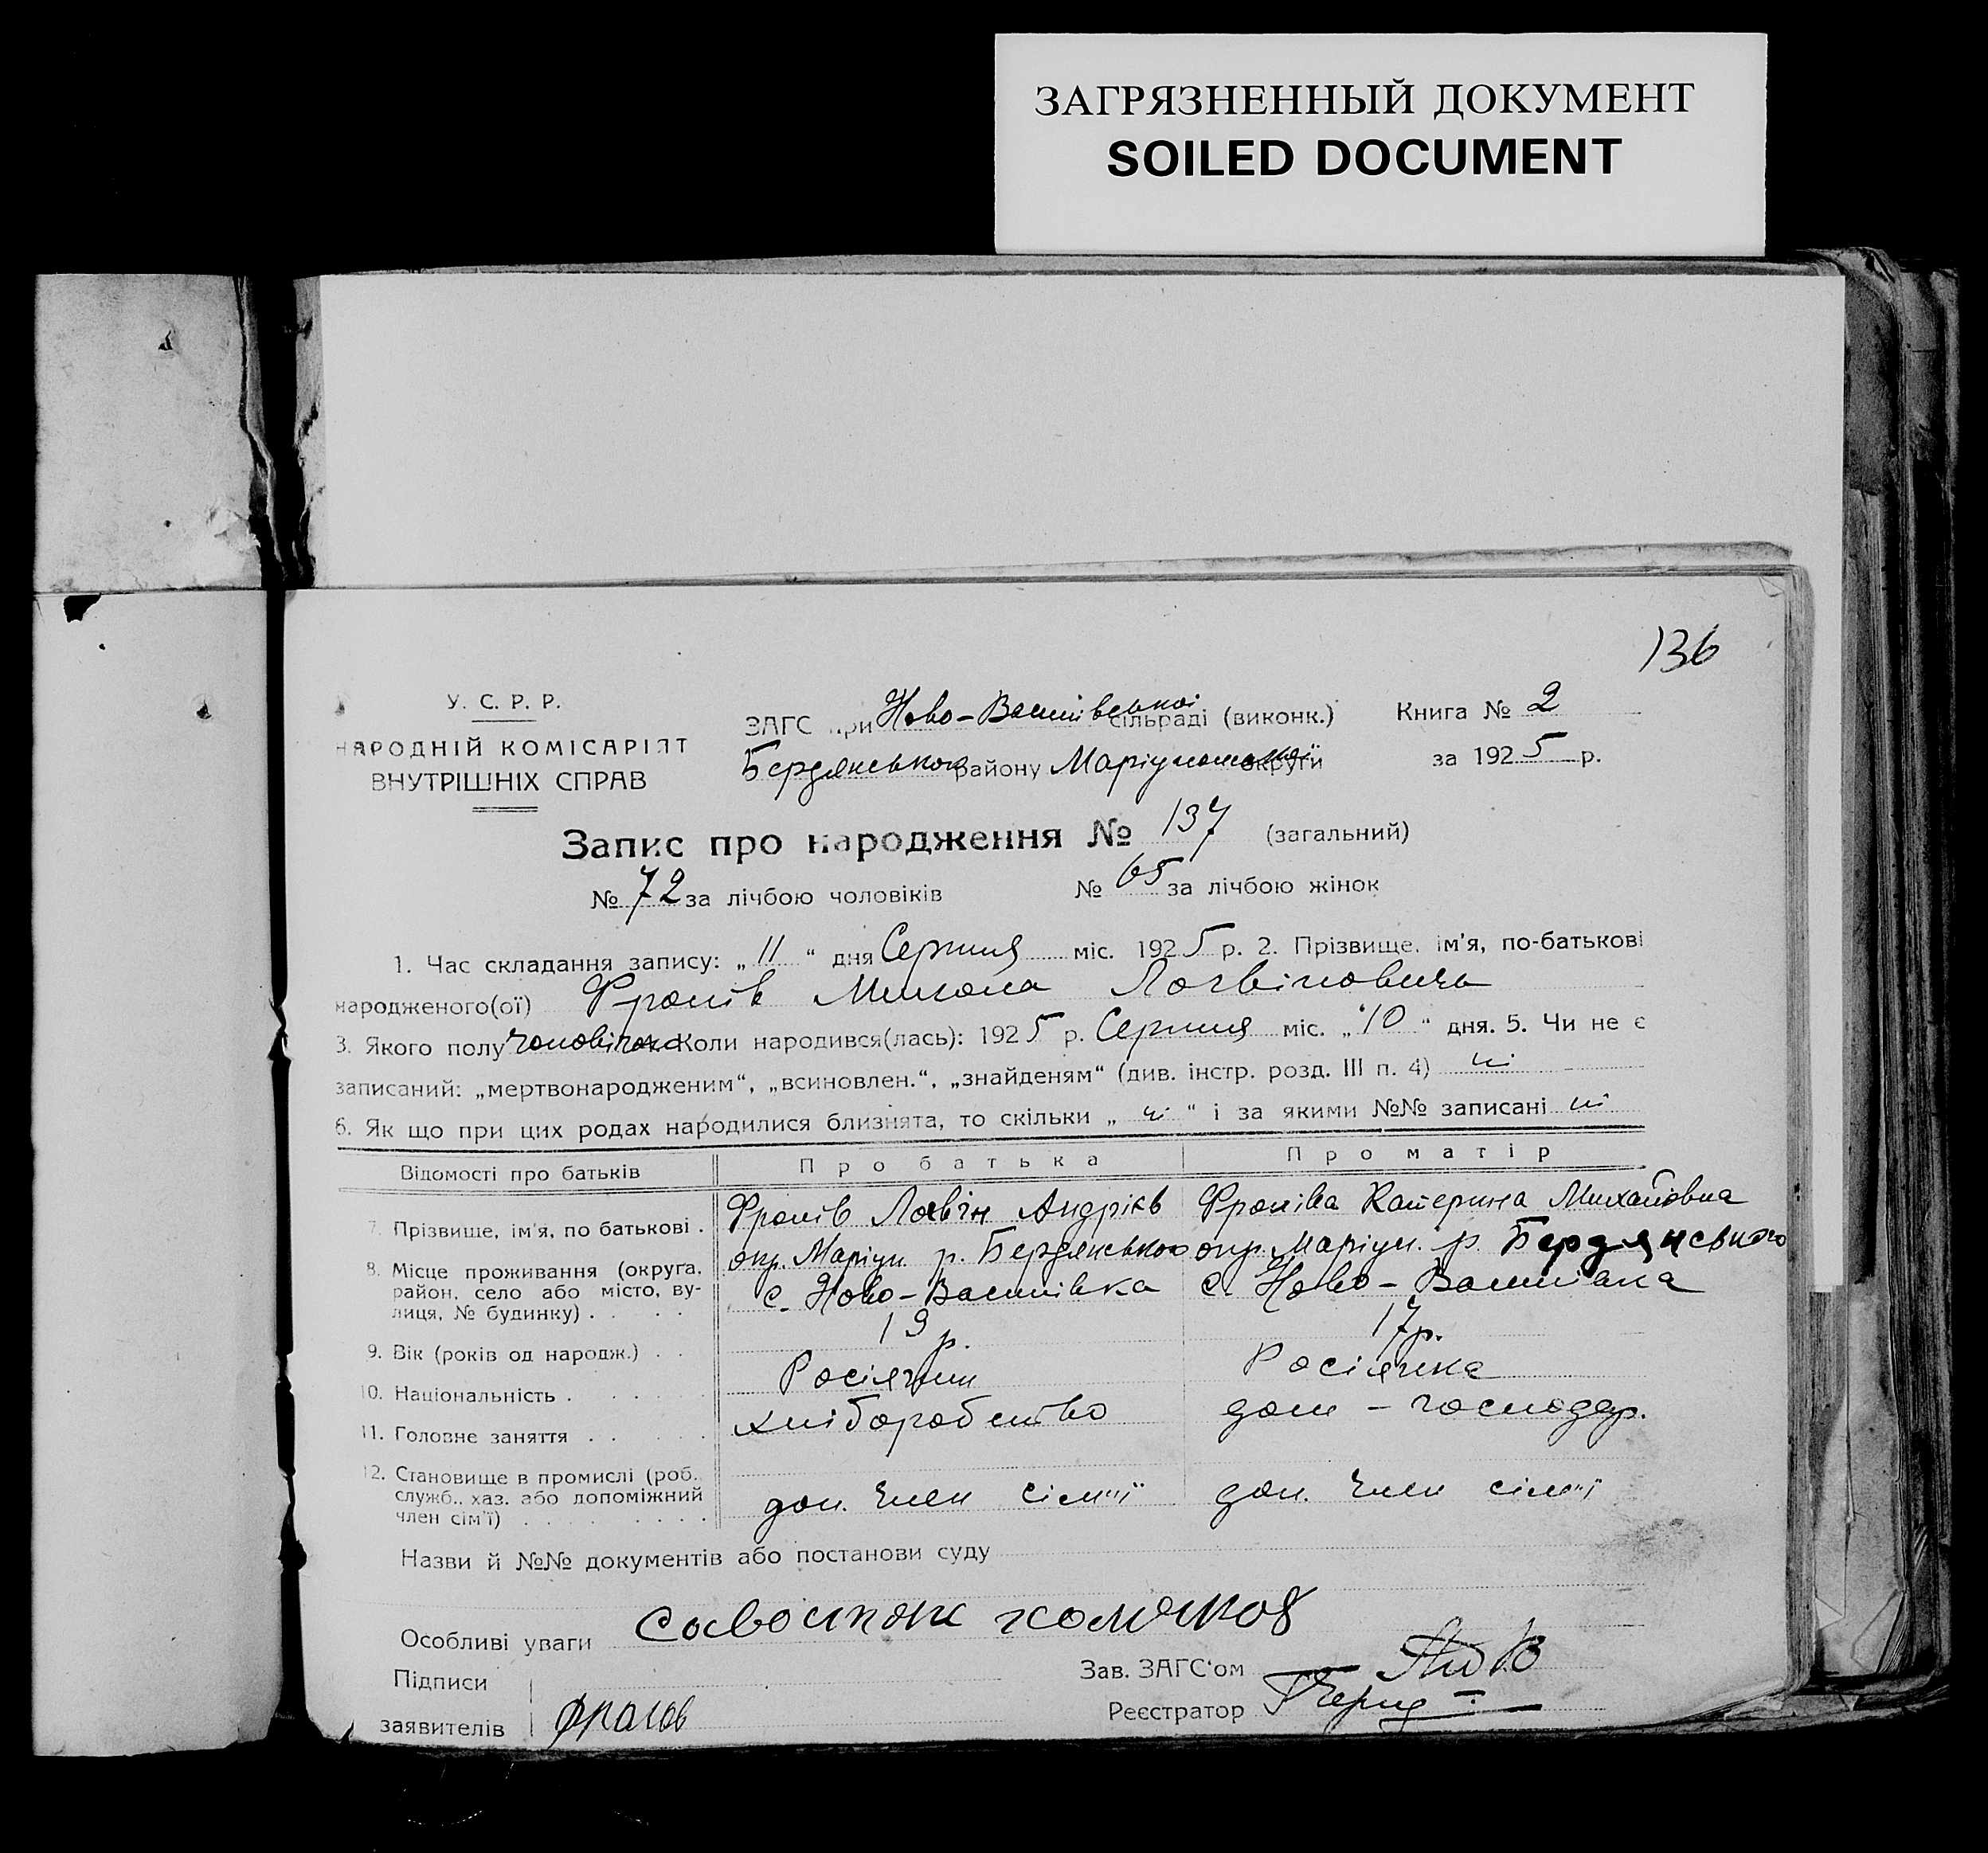 ЗАГРЯЗНЕННЫЙ ДОКУМЕНТ
SOILED DOCUMENT
136
У. С. Р. Р.
НАРОДНІЙ КОМІСАРІЯТ
ВНУТРІШНІХ СПРАВ
ЗАГС при Ново-Василівської сільраді (виконк.)
Бердянського району Маріупольської округи
Книга № 2
за 1925 р.
Запис про народження № 137 (загальний)
№ 72 за лічбою чоловіків № 65 за лічбою жінок
1. Час складання запису: „ 11 “ дня Серпня міс. 1925 р. 2. Прізвище, ім'я, по-батькові
народженого(ої) Фролів Микола Логвінович
3. Якого полу чоловічого Коли народився(лась): 1925 р. Серпня міс. „ 10 “ дня. 5. Чи не є
записаний: „мертвонародженим“, „всиновлен.“, „знайденям“ (див. інстр. розд. III п. 4) ні
6. Як що при цих родах народилися близнята, то скільки „ ні “ і за якими №№ записані ні
Відомості про батьків Про батька Про матір
7. Прізвище, ім'я, по батькові . Фролів Логвін Андрієв Фролова Катерина Михайовна
8. Місце проживання (округа, район, село або місто, вулиця, № будинку) . окр. Маріуп. р. Бердянського с. Ново-Василівка окр. Маріуп. р. Бердянського с. Ново-Василівка
9. Вік (років од народж.) . . 19 р. 17 р.
10. Національність . Росіянин Росіянка
11. Головне заняття . . хліборобство дом - господар.
12. Становище в промислі (роб., служб., хаз. або допоміжний член сім'ї) . доп. член сім"ї доп. член сім"ї
Назви й №№ документів або постанови суду
Особливі уваги
Підписи
заявителів Фролов
Зав. ЗАГС'ом
Реєстратор